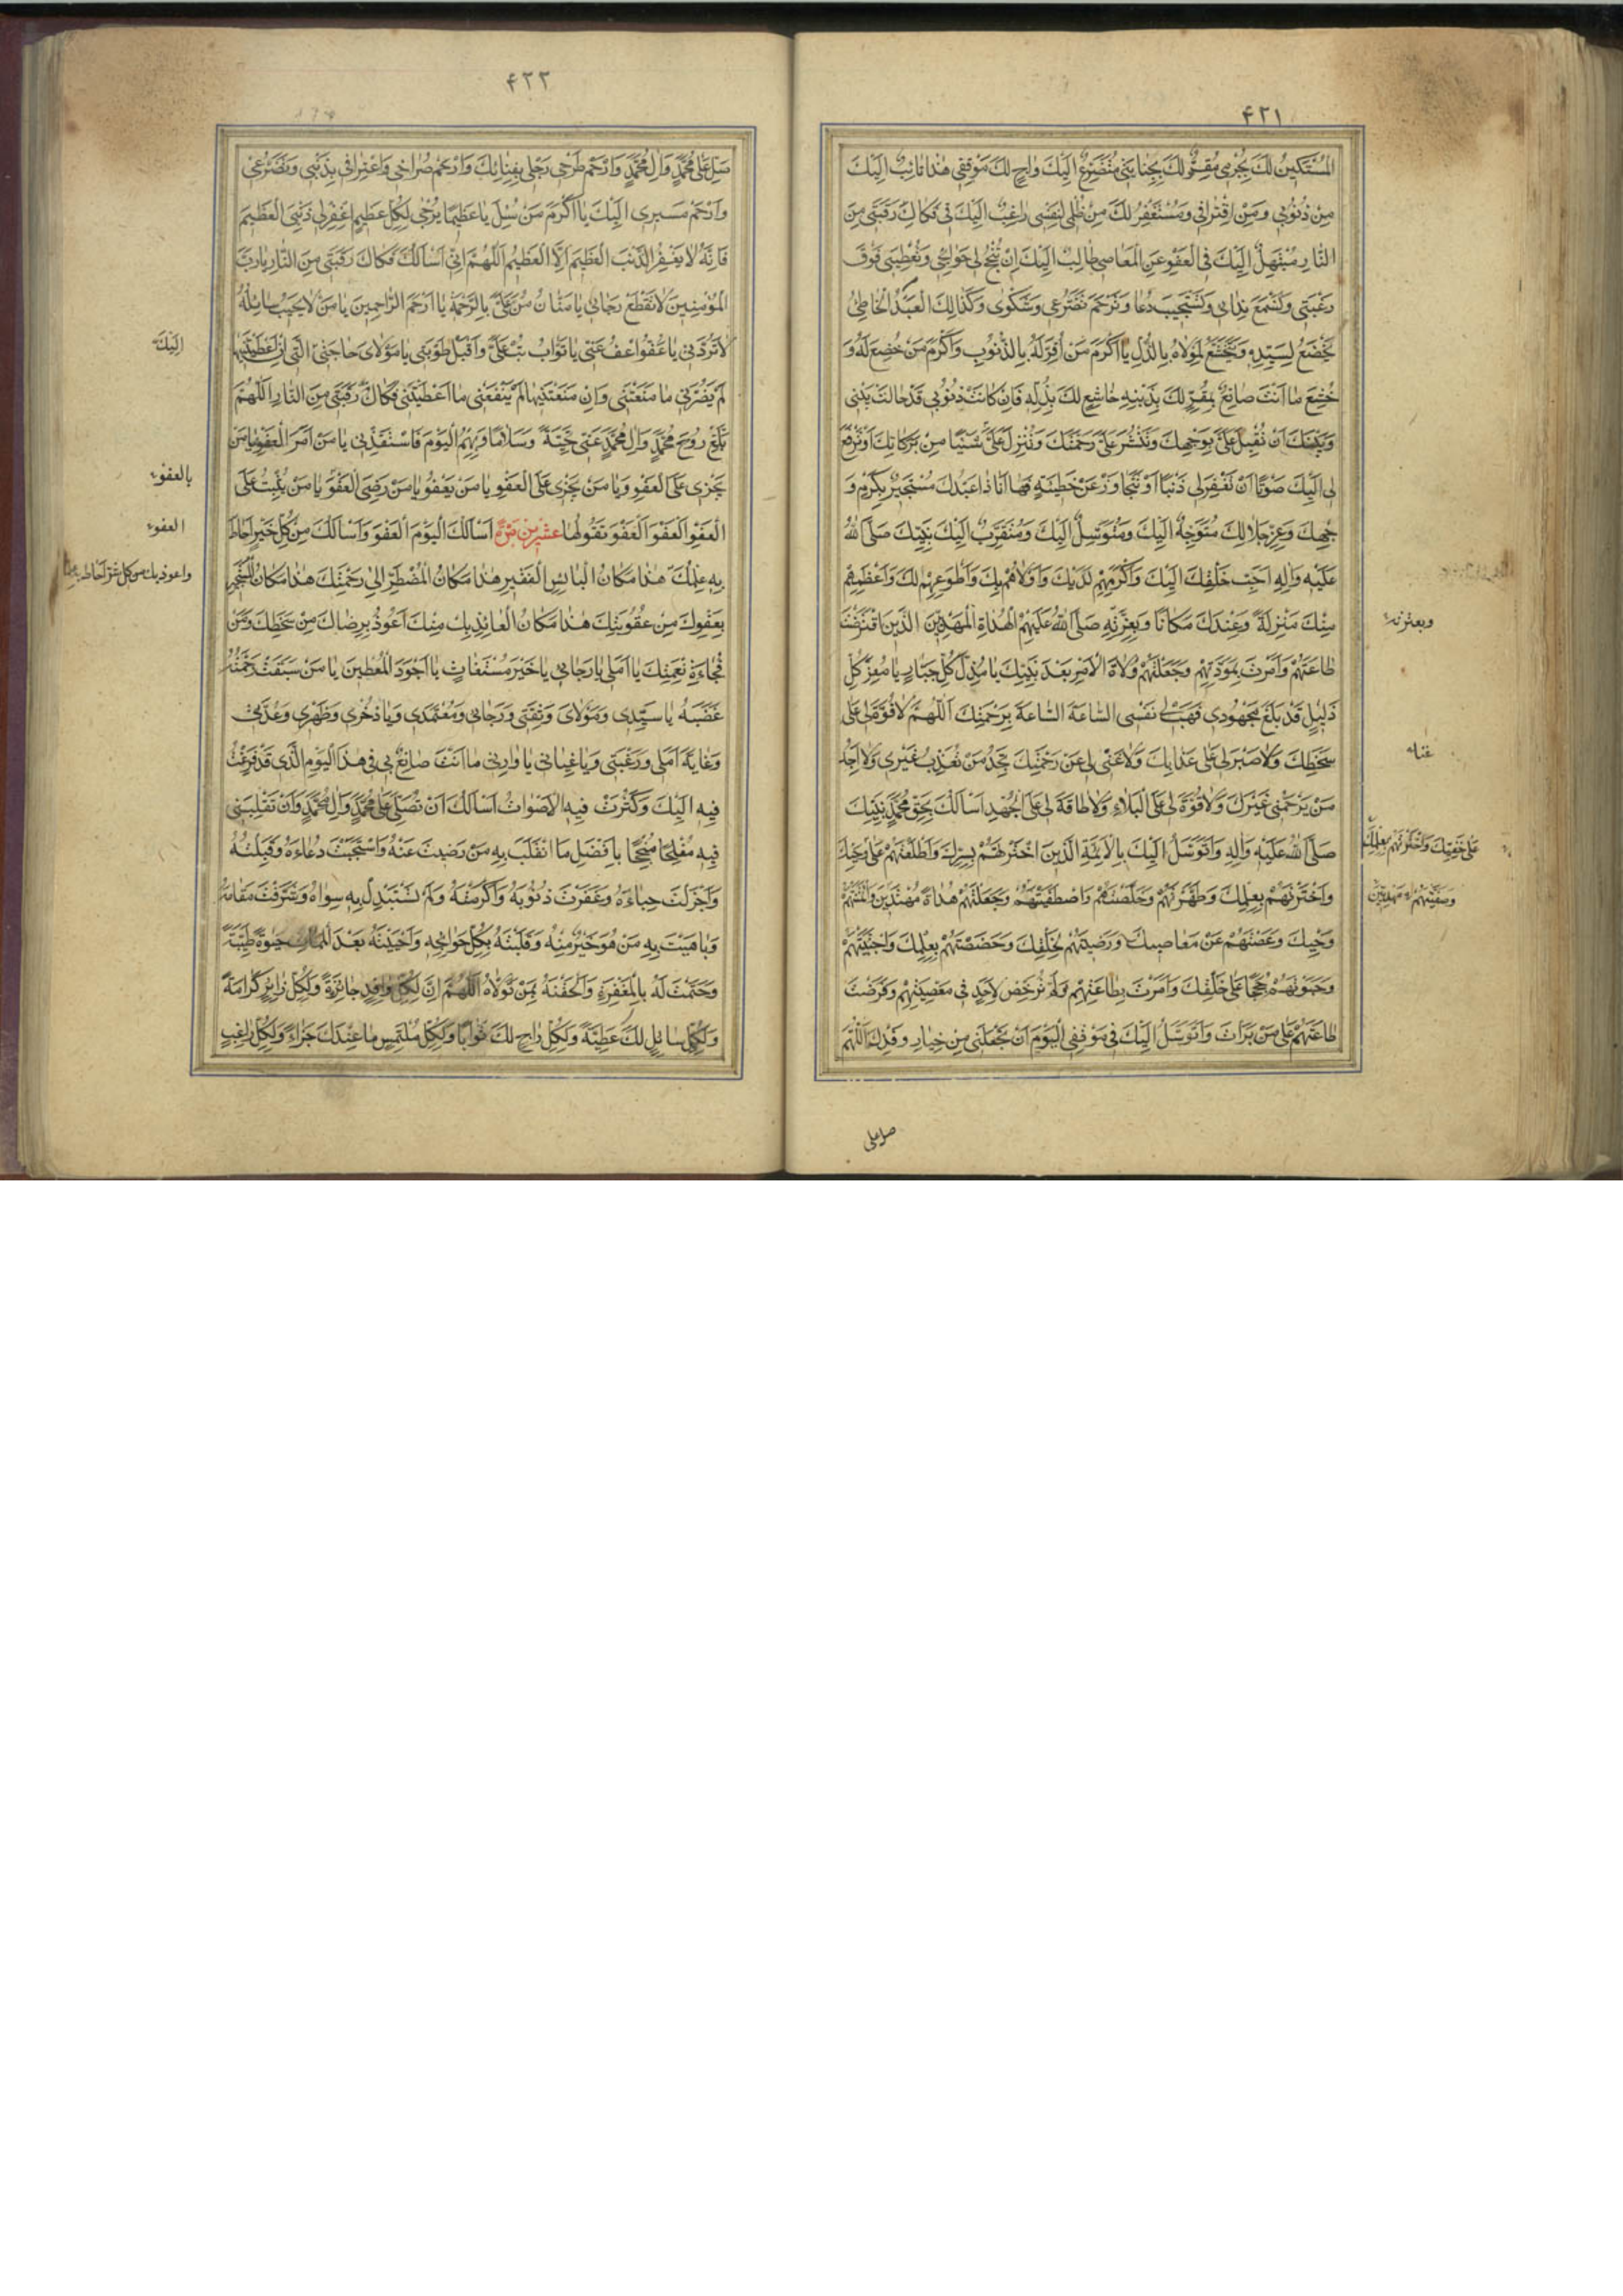 ۴۲۱
المُسْتَكينُ لَكَ بِجُرْمی مُقِرٌّ لَكَ بِجِنايَتی مُتَضَرِّعٌ اِلَيْكَ راجٍ لَكَ مَوْقِفی هٰذا تائِبٌ اِلَيْكَ
مِنْ ذُنُوبی وَمِنْ اِقْتِرافی وَمُسْتَغْفِرٌ لَكَ مِنْ ظُلْمی لِنَفْسی راغِبٌ اِلَيْكَ فی فَكاكِ رَقَبَتی مِنَ
النّارِ مُبْتَهِلٌ اِلَيْكَ فی الْعَفْوِ عَنِ الْمَعاصی طالِبٌ اِلَيْكَ اَنْ تُنْجِحَ لی حَوائِجی وَتُعْطِيَنی فَوْقَ
رَغْبَتی وَتَسْمَعَ نِدائی وَتَسْتَجيبَ دُعا وَتَرْحَمَ تَضَرُّعی وَشَكْوای وَكَذٰلِكَ الْعَبْدُ الْخاطِئُ
يَخْضَعُ لِسَيِّدِهِ وَيَتَخَشَّعُ لِمَوْلاهُ بِالذُّلِّ يا اَكْرَمَ مَنْ اُقِرَّ لَهُ بِالذُّنُوبِ وَاَكْرَمَ مَنْ خُضِعَ لَهُ وَ
خُشِعَ ما اَنْتَ صانِعٌ بِمُقِرٍّ لَكَ بِذَنْبِهِ خاشِعٍ لَكَ بِذُلِّهِ فَاِنْ كانَتْ ذُنُوبی قَدْ حالَتْ بَيْنی
وَبَيْنَكَ اَنْ تُقْبِلَ عَلَیَّ بِوَجْهِكَ وَتَنْشُرَ عَلَیَّ رَحْمَتَكَ وَتُنْزِلَ عَلَیَّ شَيْئًا مِنْ بَرَكاتِكَ اَوْ تَرْفَعَ
لی اِلَيْكَ صَوْتًا اَنْ تَغْفِرَ لی ذَنْبًا اَوْ تَتَجاوَزَ عَنْ خَطيئَةٍ فَها اَنَا ذا عَبْدُكَ مُسْتَجيرٌ بِكَرَمِ وَ
جْهِكَ وَعِزِّ جَلالِكَ مُتَوَجِّهٌ اِلَيْكَ وَمُتَوَسِّلٌ اِلَيْكَ وَمُتَقَرِّبٌ اِلَيْكَ بِنَبِيِّكَ صَلَّی اللهُ
عَلَيْهِ وَآلِهِ اَحَبِّ خَلْقِكَ اِلَيْكَ وَاَكْرَمِهِمْ لَدَيْكَ وَاَوْلاهُمْ بِكَ وَاَطْوَعِهِمْ لَكَ وَاَعْظَمِهِمْ
مِنْكَ مَنْزِلَةً وَعِنْدَكَ مَكانًا وَبِعِتْرَتِهِ صَلَّی اللهُ عَلَيْهِمُ الْهُداةِ الْمَهْدِيّينَ الَّذينَ افْتَرَضْتَ
وبعترته
طاعَتَهُمْ وَاَمَرْتَ بِمَوَدَّتِهِمْ وَجَعَلْتَهُمْ وُلاةَ الْاَمْرِ بَعْدَ نَبِيِّكَ يا مُذِلَّ كُلِّ جَبّارٍ يا مُعِزَّ كُلِّ
ذَليلٍ قَدْ بَلَغَ مَجْهُودی فَهَبْ لی نَفْسی السّاعَةَ السّاعَةَ بِرَحْمَتِكَ اَللّٰهُمَّ لا قُوَّةَ لی عَلی
سَخَطِكَ وَلا صَبْرَ لی عَلی عَذابِكَ وَلا غِنی لی عَنْ رَحْمَتِكَ تَجِدُ مَنْ تُعَذِّبُ غَيْری وَلا اَجِدُ
مَنْ يَرْحَمُنی غَيْرَكَ وَلا قُوَّةَ لی عَلَی الْبَلاءِ وَلا طاقَةَ لی عَلَی الْجُهْدِ اَسْاَلُكَ بِحَقِّ مُحَمَّدٍ نَبِيِّكَ
صَلَّی اللهُ عَلَيْهِ وَآلِهِ وَاَتَوَسَّلُ اِلَيْكَ بِالْاَئِمَّةِ الَّذينَ اخْتَرْتَهُمْ بِسِرِّكَ وَاَطْلَعْتَهُمْ عَلی وَحْيِكَ
وَاخْتَرْتَهُمْ بِعِلْمِكَ وَطَهَّرْتَهُمْ وَخَلَّصْتَهُمْ وَاصْطَفَيْتَهُمْ وَجَعَلْتَهُمْ هُداةً مُهْتَدينَ وَائْتَمَنْتَهُمْ
وَحْيِكَ وَعَصَمْتَهُمْ عَنْ مَعاصيكَ وَرَضيتَهُمْ لِخَلْقِكَ وَخَصَصْتَهُمْ بِعِلْمِكَ وَاجْتَبَيْتَهُمْ
وَحَبَوْتَهُمْ حُجَجًا عَلی خَلْقِكَ وَاَمَرْتَ بِطاعَتِهِمْ وَلَمْ تُرَخِّصْ لِاَحَدٍ فی مَعْصِيَتِهِمْ وَفَرَضْتَ
طاعَتَهُمْ عَلی مَنْ بَرَأْتَ وَاَتَوَسَّلُ اِلَيْكَ فی مَوْقِفی الْيَوْمَ اَنْ تَجْعَلَنی مِنْ خِيارِ وَفْدِكَ اَللّٰهُمَّ
صل علی
۴۲۲
صَلِّ عَلی مُحَمَّدٍ وَآلِ مُحَمَّدٍ وَارْحَمْ طَرْحی رَحْلی بِفِنائِكَ وَارْحَمْ صُراخی وَاعْتِرافی بِذَنْبی وَتَضَرُّعی
وَارْحَمْ مَسيری اِلَيْكَ يا اَكْرَمَ مَنْ سُئِلَ يا عَظيمًا يُرْجی لِكُلِّ عَظيمٍ اغْفِرْ لی ذَنْبِیَ الْعَظيمَ
فَاِنَّهُ لا يَغْفِرُ الذَّنْبَ الْعَظيمَ اِلَّا الْعَظيمُ اَللّٰهُمَّ اِنّی اَسْاَلُكَ فَكاكَ رَقَبَتی مِنَ النّارِ يا رَبَّ
الْمُؤْمِنينَ لا تَقْطَعْ رَجائی يا مَنّانُ مُنَّ عَلَیَّ بِالرَّحْمَةِ يا اَرْحَمَ الرّاحِمينَ يا مَنْ لا يَخيبُ سائِلُهُ
لا تَرُدَّنی يا عَفُوُّ اعْفُ عَنّی يا تَوّابُ تُبْ عَلَیَّ وَاقْبَلْ تَوْبَتی يا مَوْلایَ حاجَتی الَّتی اِنْ اَعْطَيْتَنيها
اِلَيْكَ
لَمْ يَضُرَّنی ما مَنَعْتَنی وَاِنْ مَنَعْتَنيها لَمْ يَنْفَعْنی ما اَعْطَيْتَنی فَكاكَ رَقَبَتی مِنَ النّارِ اَللّٰهُمَّ
بَلِّغْ رُوحَ مُحَمَّدٍ وَآلِ مُحَمَّدٍ عَنّی تَحِيَّةً وَسَلامًا وَبِهِمُ الْيَوْمَ فَاسْتَنْقِذْنی يا مَنْ اَمَرَ الْعَفْوِ يا مَنْ
بالعفو
يَجْزی عَلَی الْعَفْوِ وَيا مَنْ يَجْزی عَلَی الْعَفْوِ يا مَنْ يَعْفُو يا مَنْ رَضِیَ الْعَفْوَ يا مَنْ يُثيبُ عَلَی
الْعَفْوِ الْعَفْوَ الْعَفْوَ تَقُولُها عشرين مَرّةً اَسْاَلُكَ الْيَوْمَ الْعَفْوَ وَاَسْاَلُكَ مِنْ كُلِّ خَيْرٍ اَحاطَ
العفو
بِهِ عِلْمُكَ هٰذا مَكانُ الْبائِسِ الْفَقيرِ هٰذا مَكانُ الْمُضْطَرِّ اِلی رَحْمَتِكَ هٰذا مَكانُ الْمُسْتَجيرِ
واعوذ بك من كل شر احاط به
بِعَفْوِكَ مِنْ عُقُوبَتِكَ هٰذا مَكانُ الْعائِذِ بِكَ مِنْكَ اَعُوذُ بِرِضاكَ مِنْ سَخَطِكَ وَمِنْ
فُجاءَةِ نَقِمَتِكَ يا اَمَلی يا رَجائی يا خَيْرَ مُسْتَغاثٍ يا اَجْوَدَ الْمُعْطينَ يا مَنْ سَبَقَتْ رَحْمَتُهُ
غَضَبَهُ يا سَيِّدی وَمَوْلایَ وَثِقَتی وَرَجائی وَمُعْتَمَدی وَيا ذُخْری وَظَهْری وَعُدَّتی
وَغايَةَ اَمَلی وَرَغْبَتی وَيا غِياثی يا وارِثی ما اَنْتَ صانِعٌ بی فی هٰذَا الْيَوْمِ الَّذی قَدْ فَزِعْتُ
فيهِ اِلَيْكَ وَكَثُرَتْ فيهِ الْاَصْواتُ اَسْاَلُكَ اَنْ تُصَلِّیَ عَلی مُحَمَّدٍ وَآلِ مُحَمَّدٍ وَاَنْ تَقْلِبَنی
فيهِ مُفْلِحًا مُنْجِحًا بِاَفْضَلِ ما انْقَلَبَ بِهِ مَنْ رَضيتَ عَنْهُ وَاسْتَجَبْتَ دُعاءَهُ وَقَبِلْتَهُ
وَاَجْزَلْتَ حِباءَهُ وَغَفَرْتَ ذُنُوبَهُ وَاَكْرَمْتَهُ وَلَمْ تَسْتَبْدِلْ بِهِ سِواهُ وَشَرَّفْتَ مَقامَهُ
وَباهَيْتَ بِهِ مَنْ هُوَ خَيْرٌ مِنْهُ وَقَلَبْتَهُ بِكُلِّ حَوائِجِهِ وَاَحْيَيْتَهُ بَعْدَ الْمَماتِ حَيٰوةً طَيِّبَةً
وَخَتَمْتَ لَهُ بِالْمَغْفِرَةِ وَاَلْحَقْتَهُ بِمَنْ تَوَلّاهُ اَللّٰهُمَّ اِنَّ لِكُلِّ وافِدٍ جائِزَةً وَلِكُلِّ زائِرٍ كَرامَةً
وَلِكُلِّ سائِلٍ لَكَ عَطِيَّةً وَلِكُلِّ راجٍ لَكَ ثَوابًا وَلِكُلِّ مُلْتَمِسٍ ما عِنْدَكَ جَزاءً وَلِكُلِّ راغِبٍ